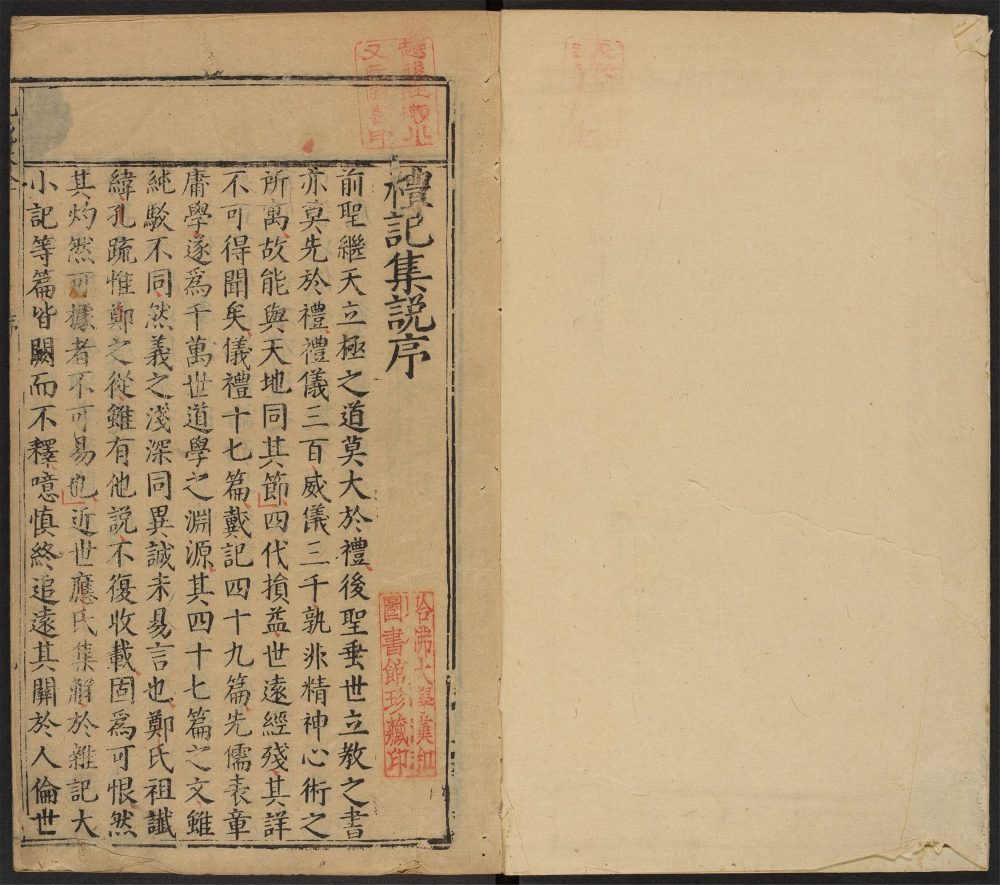 禮記集説序
前聖繼天立極之道莫大於禮後聖垂世立教之書
亦莫先於禮禮儀三百威儀三千孰非精神心術之
所寓故能與天地同其節四代損益世遠經殘其詳
不可得聞矣儀禮十七篇戴記四十九篇先儒表章
庸學遂爲千萬世道學之淵源其四十七篇之文雖
純駁不同然義之淺深同異誠未易言也鄭氏祖讖
緯孔疏惟鄭之從雖有他説不復收載固爲可恨然
其灼然可據者不可易也近世應氏集解於雜記大
小記等篇皆闕而不釋噫慎終追遠其關於人倫世
哈佛大學漢和
圖書館珍藏印